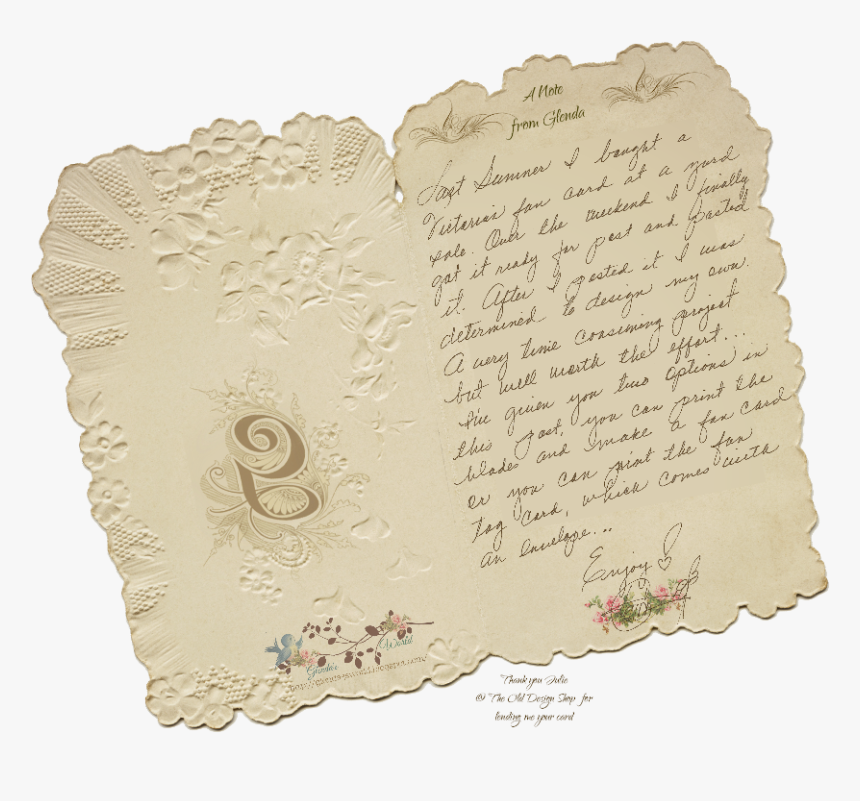 A Note
from Glenda
Last Summer I bought a
Victorian fan card at a yard
sale. Over the weekend I finally
got it ready for post and posted
it. After I posted it I was
determined to design my own.
A very time consiming project
but well worth the effort...
I've given you two options in
this post, you can print the
blades and make a fan card
or you can print the fan
tag card, which comes with
an envelope...
Enjoy!
Glenda's
World
Thank you Julie
© The Old Design Shop for
lending me your card